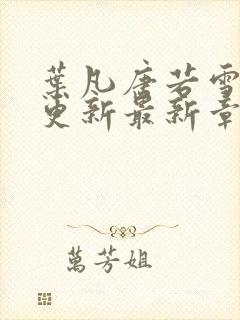 葉凡唐若雪
更新最新章
萬芳姐